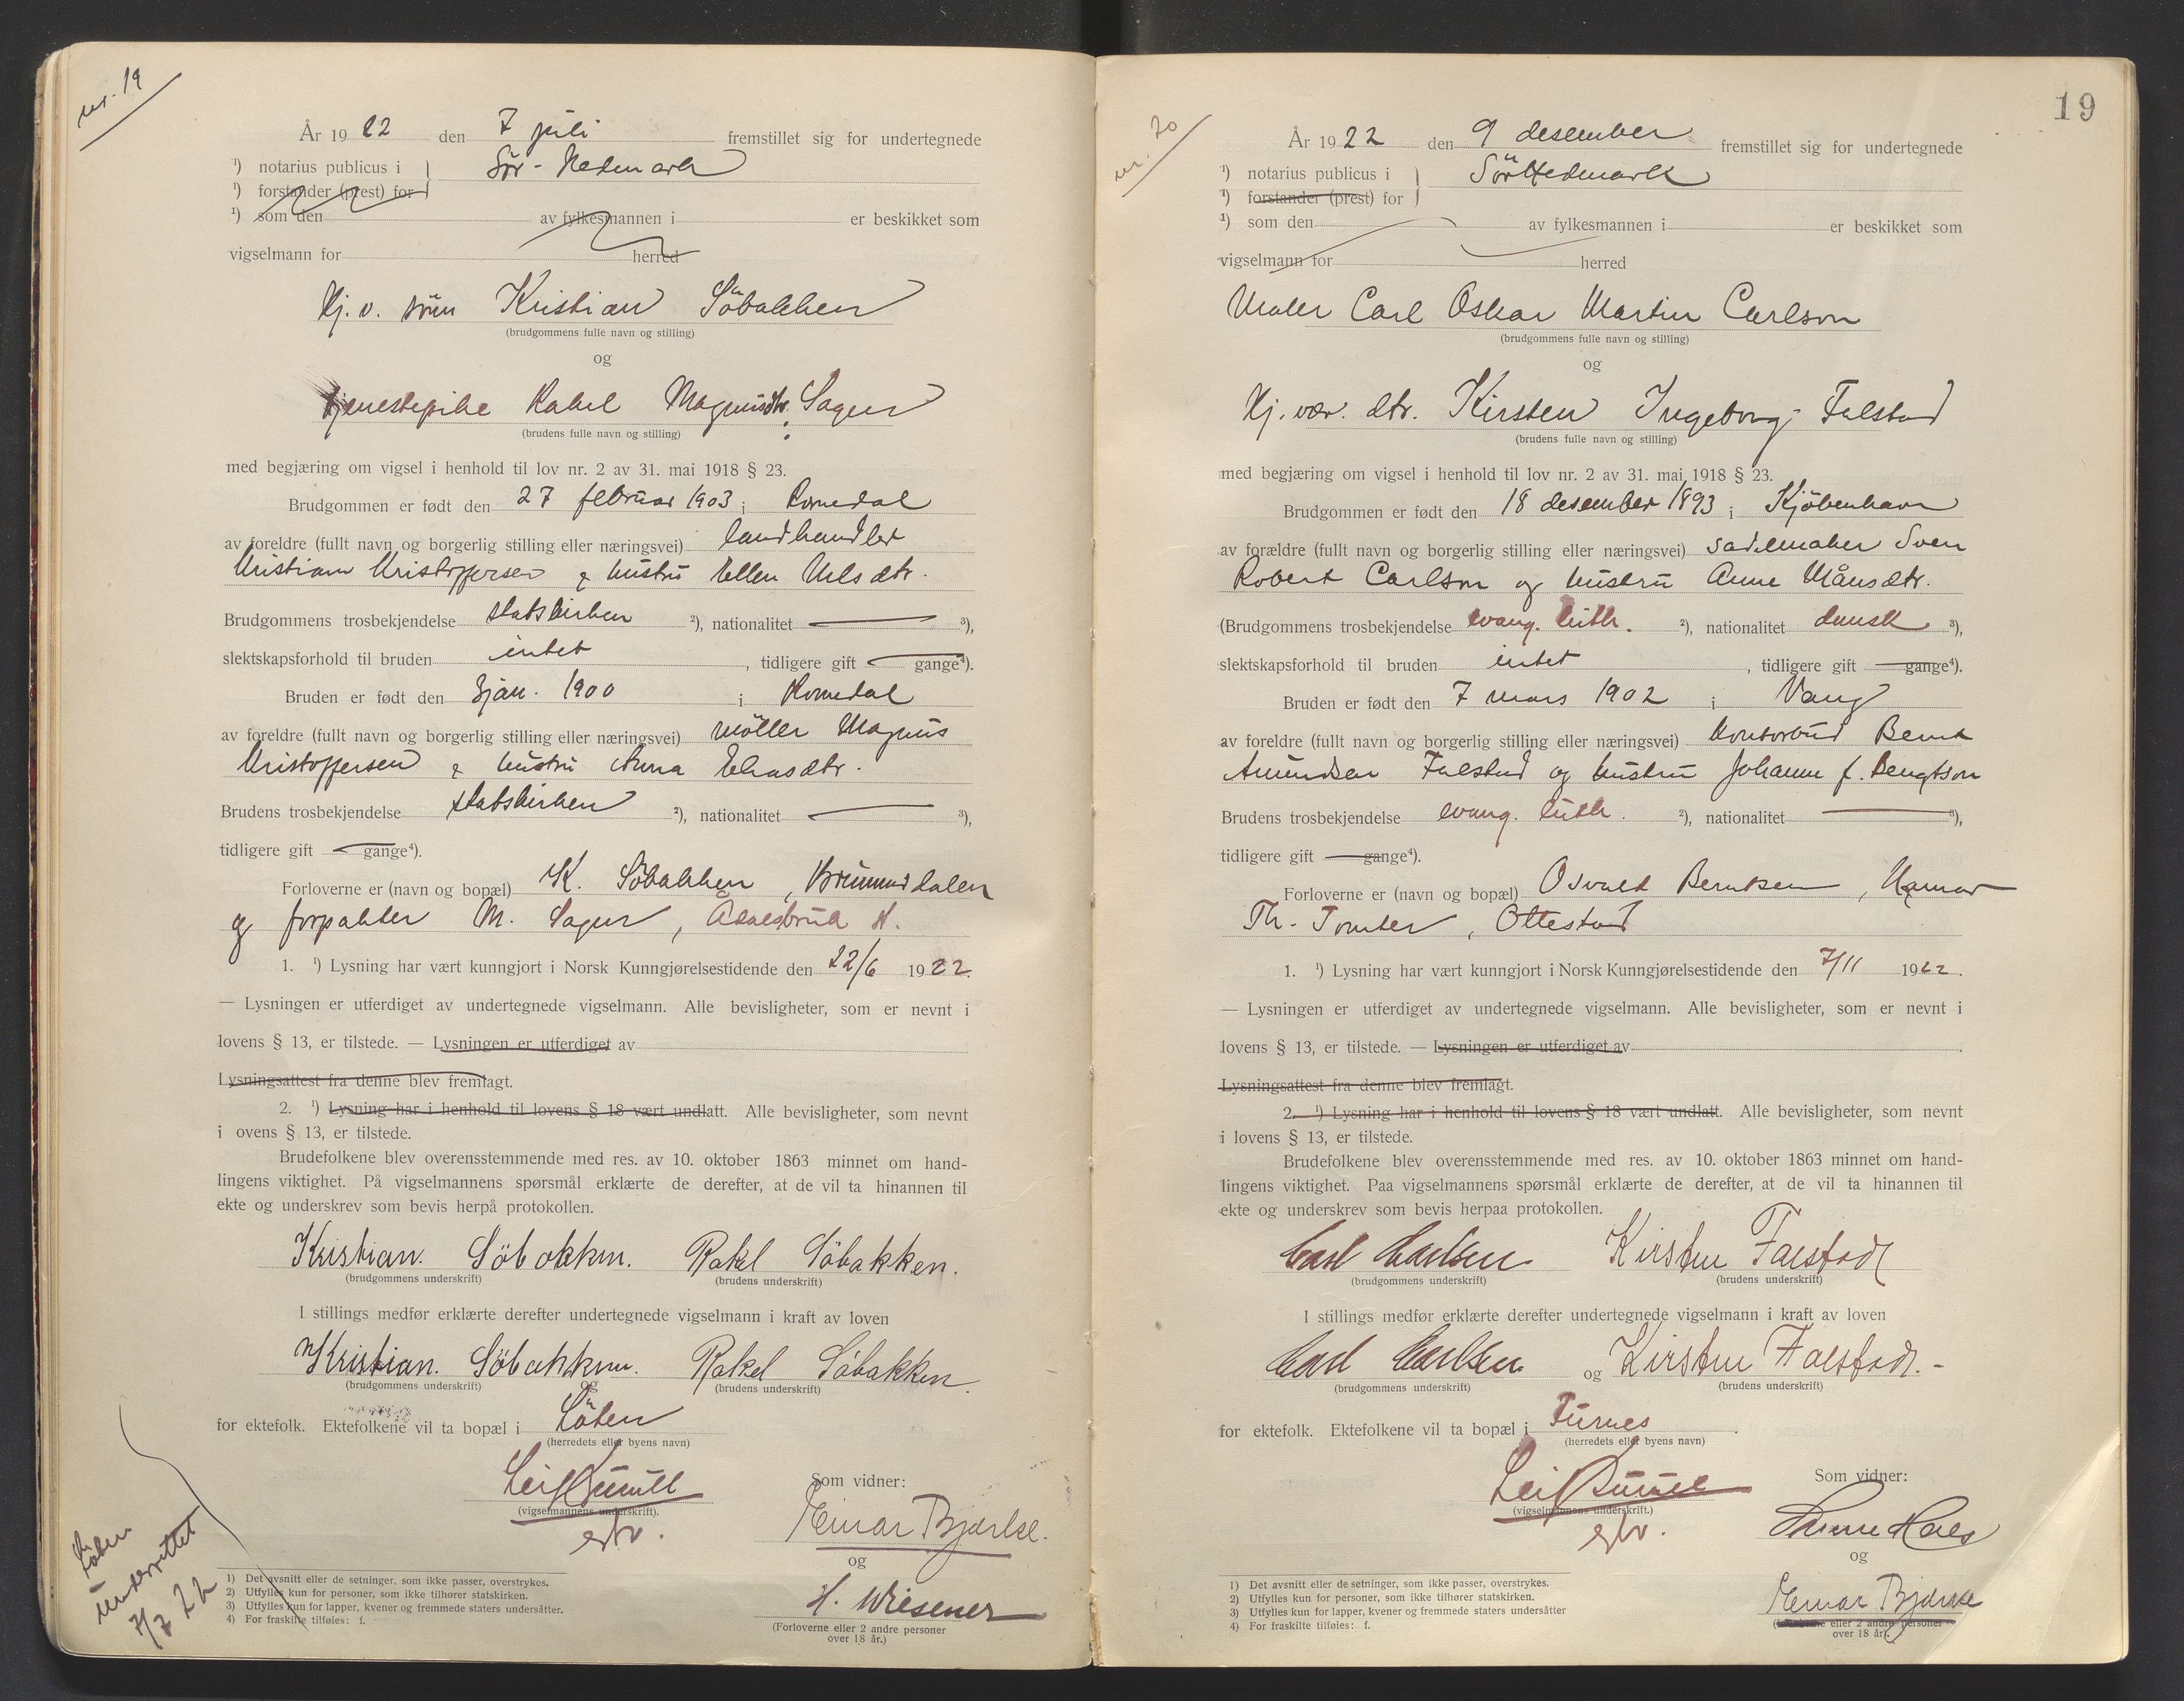 nr. 19
År 1922 den 7 juli fremstillet sig for undertegnede
¹) notarius publicus i } Sör-Hedmark
¹) forstander (prest) for
¹) som den av fylkesmannen i er beskikket som
vigselmann for herred
Hj. v. sönn Kristian Söbakken
(brudgommens fulle navn og stilling)
og
tjenestepike Rakel Magnusdtr. Sagen
(brudens fulle navn og stilling)
med begjæring om vigsel i henhold til lov nr. 2 av 31. mai 1918 § 23.
Brudgommen er født den 27 februar 1903 i Romedal
av foreldre (fullt navn og borgerlig stilling eller næringsvei) landhandler
Kristian Kristoffersen & hustru Ellen Nilsdtr.
Brudgommens trosbekjendelse statskirken ²), nationalitet — ³),
slektskapsforhold til bruden intet , tidligere gift — gange⁴).
Bruden er født den 3 jan. 1900 i Romedal
av foreldre (fullt navn og borgerlig stilling eller næringsvei) möller Magnus
Kristoffersen & hustru Anna Eliasdtr.
Brudens trosbekjendelse statskirken ²), nationalitet — ³),
tidligere gift — gange⁴).
Forloverne er (navn og bopæl) K. Söbakken, Brumunddalen
og forpakter M. Sagen, Ådalsbruk st.
1. ¹) Lysning har vært kunngjort i Norsk Kunngjørelsestidende den 22/6 1922.
— Lysningen er utferdiget av undertegnede vigselmann. Alle bevisligheter, som er nevnt i
lovens § 13, er tilstede. — Lysningen er utferdiget av
Lysningsattest fra denne blev fremlagt.
2. ¹) Lysning har i henhold til lovens § 18 vært undlatt. Alle bevisligheter, som nevnt
i ovens § 13, er tilstede.
Brudefolkene blev overensstemmende med res. av 10. oktober 1863 minnet om hand-
lingens viktighet. På vigselmannens spørsmål erklærte de derefter, at de vil ta hinannen til
ekte og underskrev som bevis herpå protokollen.
Kristian. Söbakken. Rakel Söbakken.
(brudgommens underskrift) (brudens underskrift)
I stillings medfør erklærte derefter undertegnede vigselmann i kraft av loven
Kristian. Söbakken. Rakel Söbakken.
(brudgommens underskrift) og (brudens underskrift)
for ektefolk. Ektefolkene vil ta bopæl i Löten
(herredets eller byens navn)
Som vidner:
(vigselmannens underskrift).
Einar Bjerke.
og
H. Wiesener
(Forloverne eller 2 andre personer
over 18 år.)
Löten
underrettet
7/7 22
1) Det avsnitt eller de setninger, som ikke passer, overstrykes.
2) Utfylles kun for personer, som ikke tilhører statskirken.
3) Utfylles kun for lapper, kvener og fremmede staters undersåtter.
4) For fraskilte tilføies: f.
19
nr. 20
År 1922 den 9 desember fremstillet sig for undertegnede
¹) notarius publicus i } Sör Hedmark
¹) forstander (prest) for
¹) som den av fylkesmannen i er beskikket som
vigselmann for herred
Maler Carl Oskar Martin Carlson
(brudgommens fulle navn og stilling)
og
Hj. vær. dtr. Kirsten Ingeborg Falstad
(brudens fulle navn og stilling)
med begjæring om vigsel i henhold til lov nr. 2 av 31. mai 1918 § 23.
Brudgommen er født den 18 desember 1893 i Kjöbenhavn
av forældre (fullt navn og borgerlig stilling eller næringsvei) sadelmaker Sven
Robert Carlson og hustru Anne Månsdtr.
(Brudgommens trosbekjendelse evang. luth. ²), nationalitet dansk ³),
slektskapsforhold til bruden intet , tidligere gift — gange⁴).
Bruden er født den 7 mars 1902 i Vang
av foreldre (fullt navn og borgerlig stilling eller næringsvei) kontorbud Bernt
Amundsen Falstad og hustru Johanne f. Bengtson
Brudens trosbekjendelse evang. luth. ²), nationalitet — ³),
tidligere gift — gange⁴).
Forloverne er (navn og bopæl) Osvald Berntsen, Hamar
Th. Tomter, Ottestad
1. ¹) Lysning har vært kunngjort i Norsk Kunngjørelsestidende den 7/11 1922.
— Lysningen er utferdiget av undertegnede vigselmann. Alle bevisligheter, som er nevnt i
lovens § 13, er tilstede. — Lysningen er utferdiget av .
Lysningsattest fra denne blev fremlagt.
2. ¹) Lysning har i henhold til lovens § 18 vært undlatt. Alle bevisligheter, som nevnt
i lovens § 13, er tilstede.
Brudefolkene blev overensstemmende med res. av 10. oktober 1863 minnet om hand-
lingens viktighet. Paa vigselmannens spørsmål erklærte de derefter, at de vil ta hinannen til
ekte og underskrev som bevis herpaa protokollen.
Carl Carlsen Kirsten Falstad
(brudgommens underskrift) (brudens underskrift)
I stillings medfør erklærte derefter undertegnede vigselmann i kraft av loven
Carl Carlsen og Kirsten Falstad. -
(brudgommens underskrift) (brudens underskrift)
for ektefolk. Ektefolkene vil ta bopæl i Furnes .
(herredets eller byens navn)
Som vidner:
(vigselmannens underskrift.)
og
Einar Bjerke
eller 2 andre personer
over 18 år).
1) Det avsnitt eller de setninger, som ikke passer, overstrykes.
2) Utfylles kun for personer, som ikke tilhører statskirken.
3) Utfylles kun for lapper, kvener og fremmede staters undersåtter
4) For fraskilte tilføies: f.